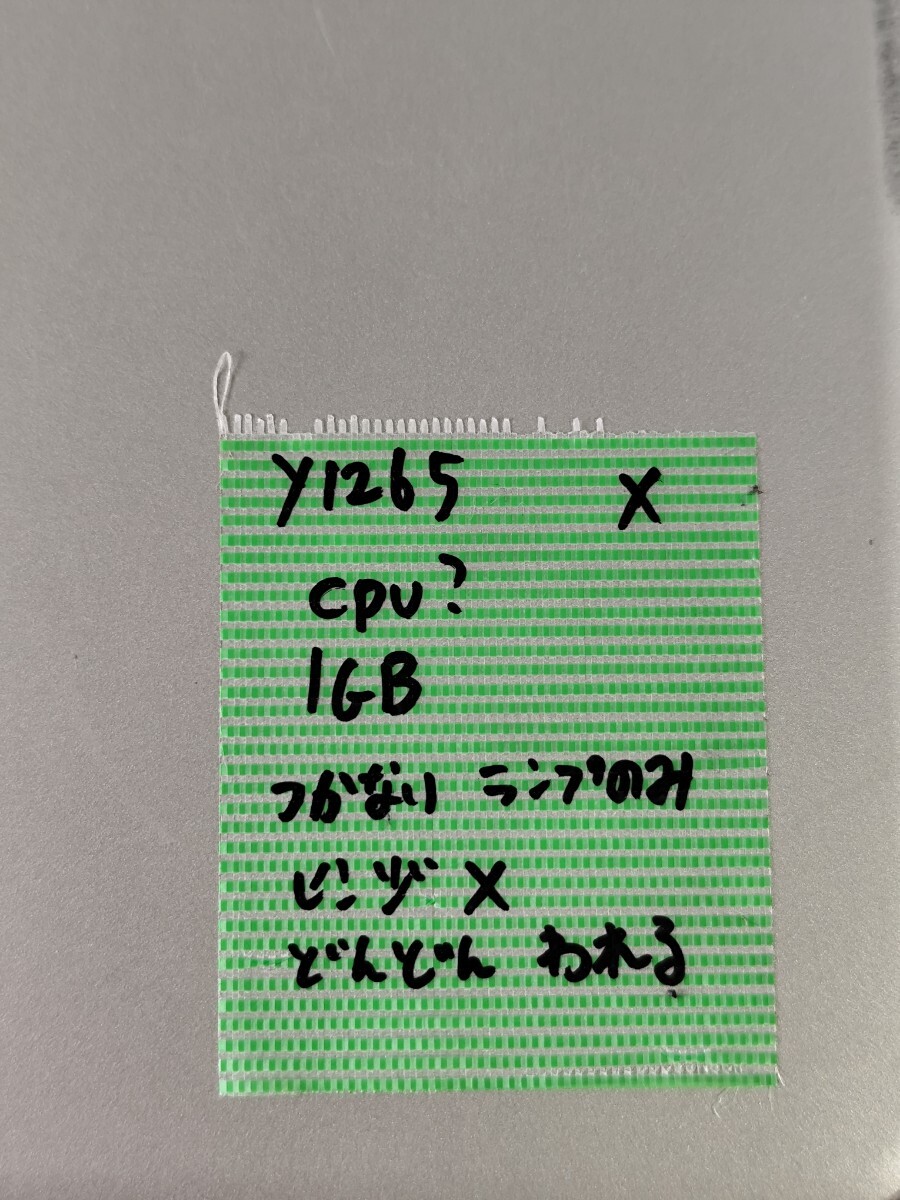 Y1265 X
CPU?
1GB
つかない ランプのみ
ヒンヅ X
どんどん われる